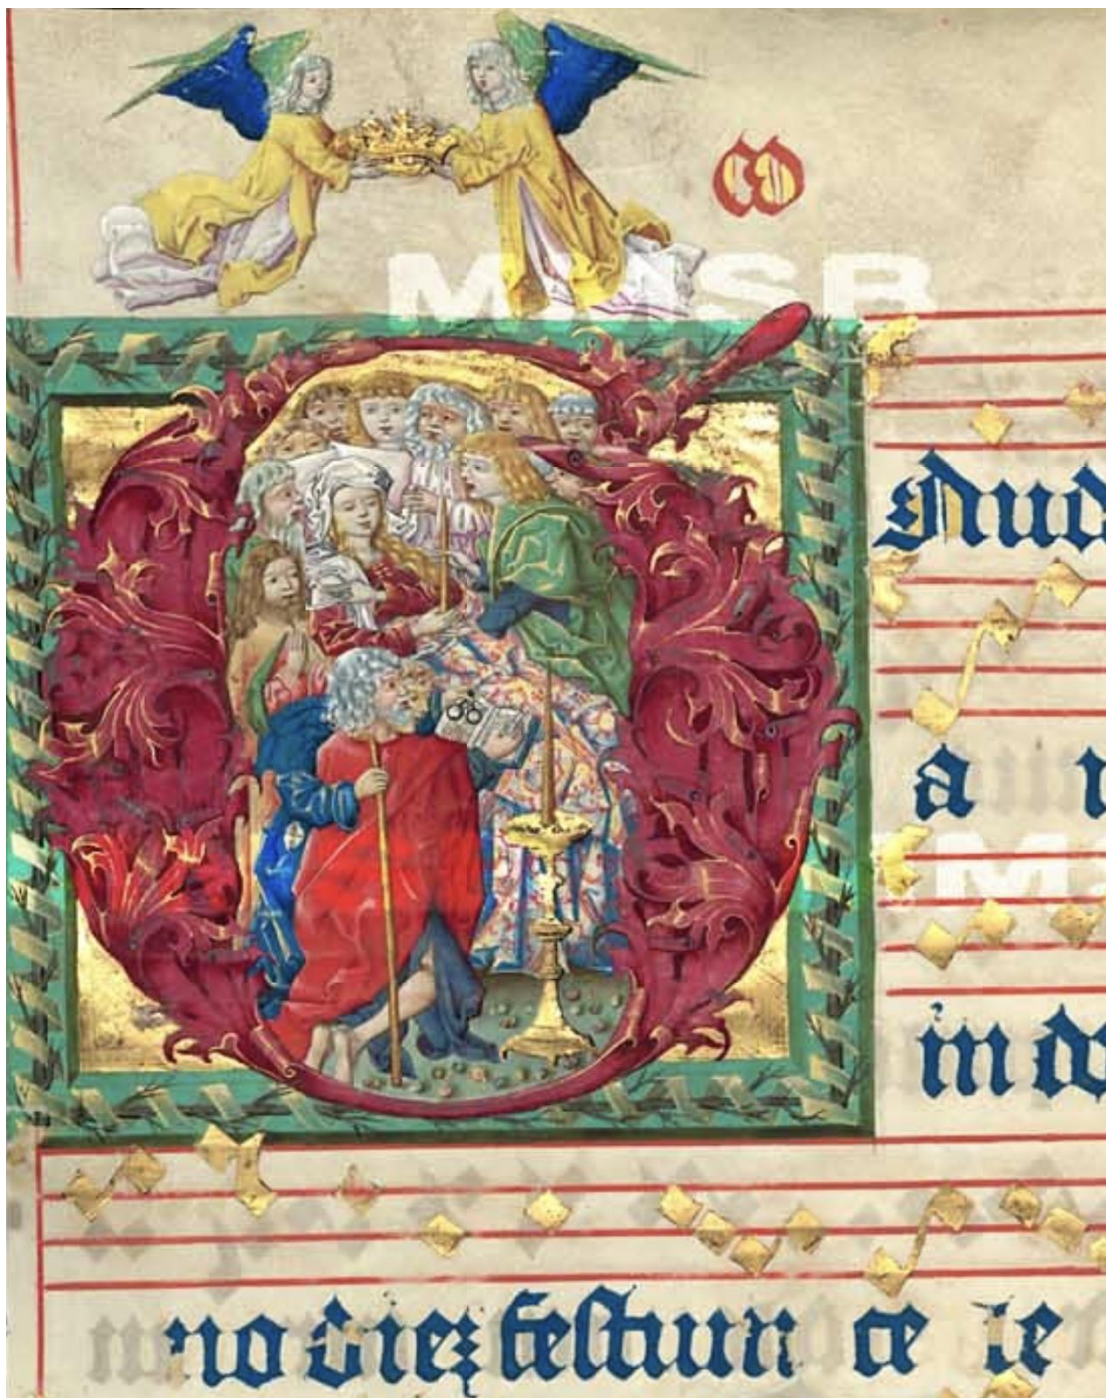 GAud
a
in do
no diez festum ce le